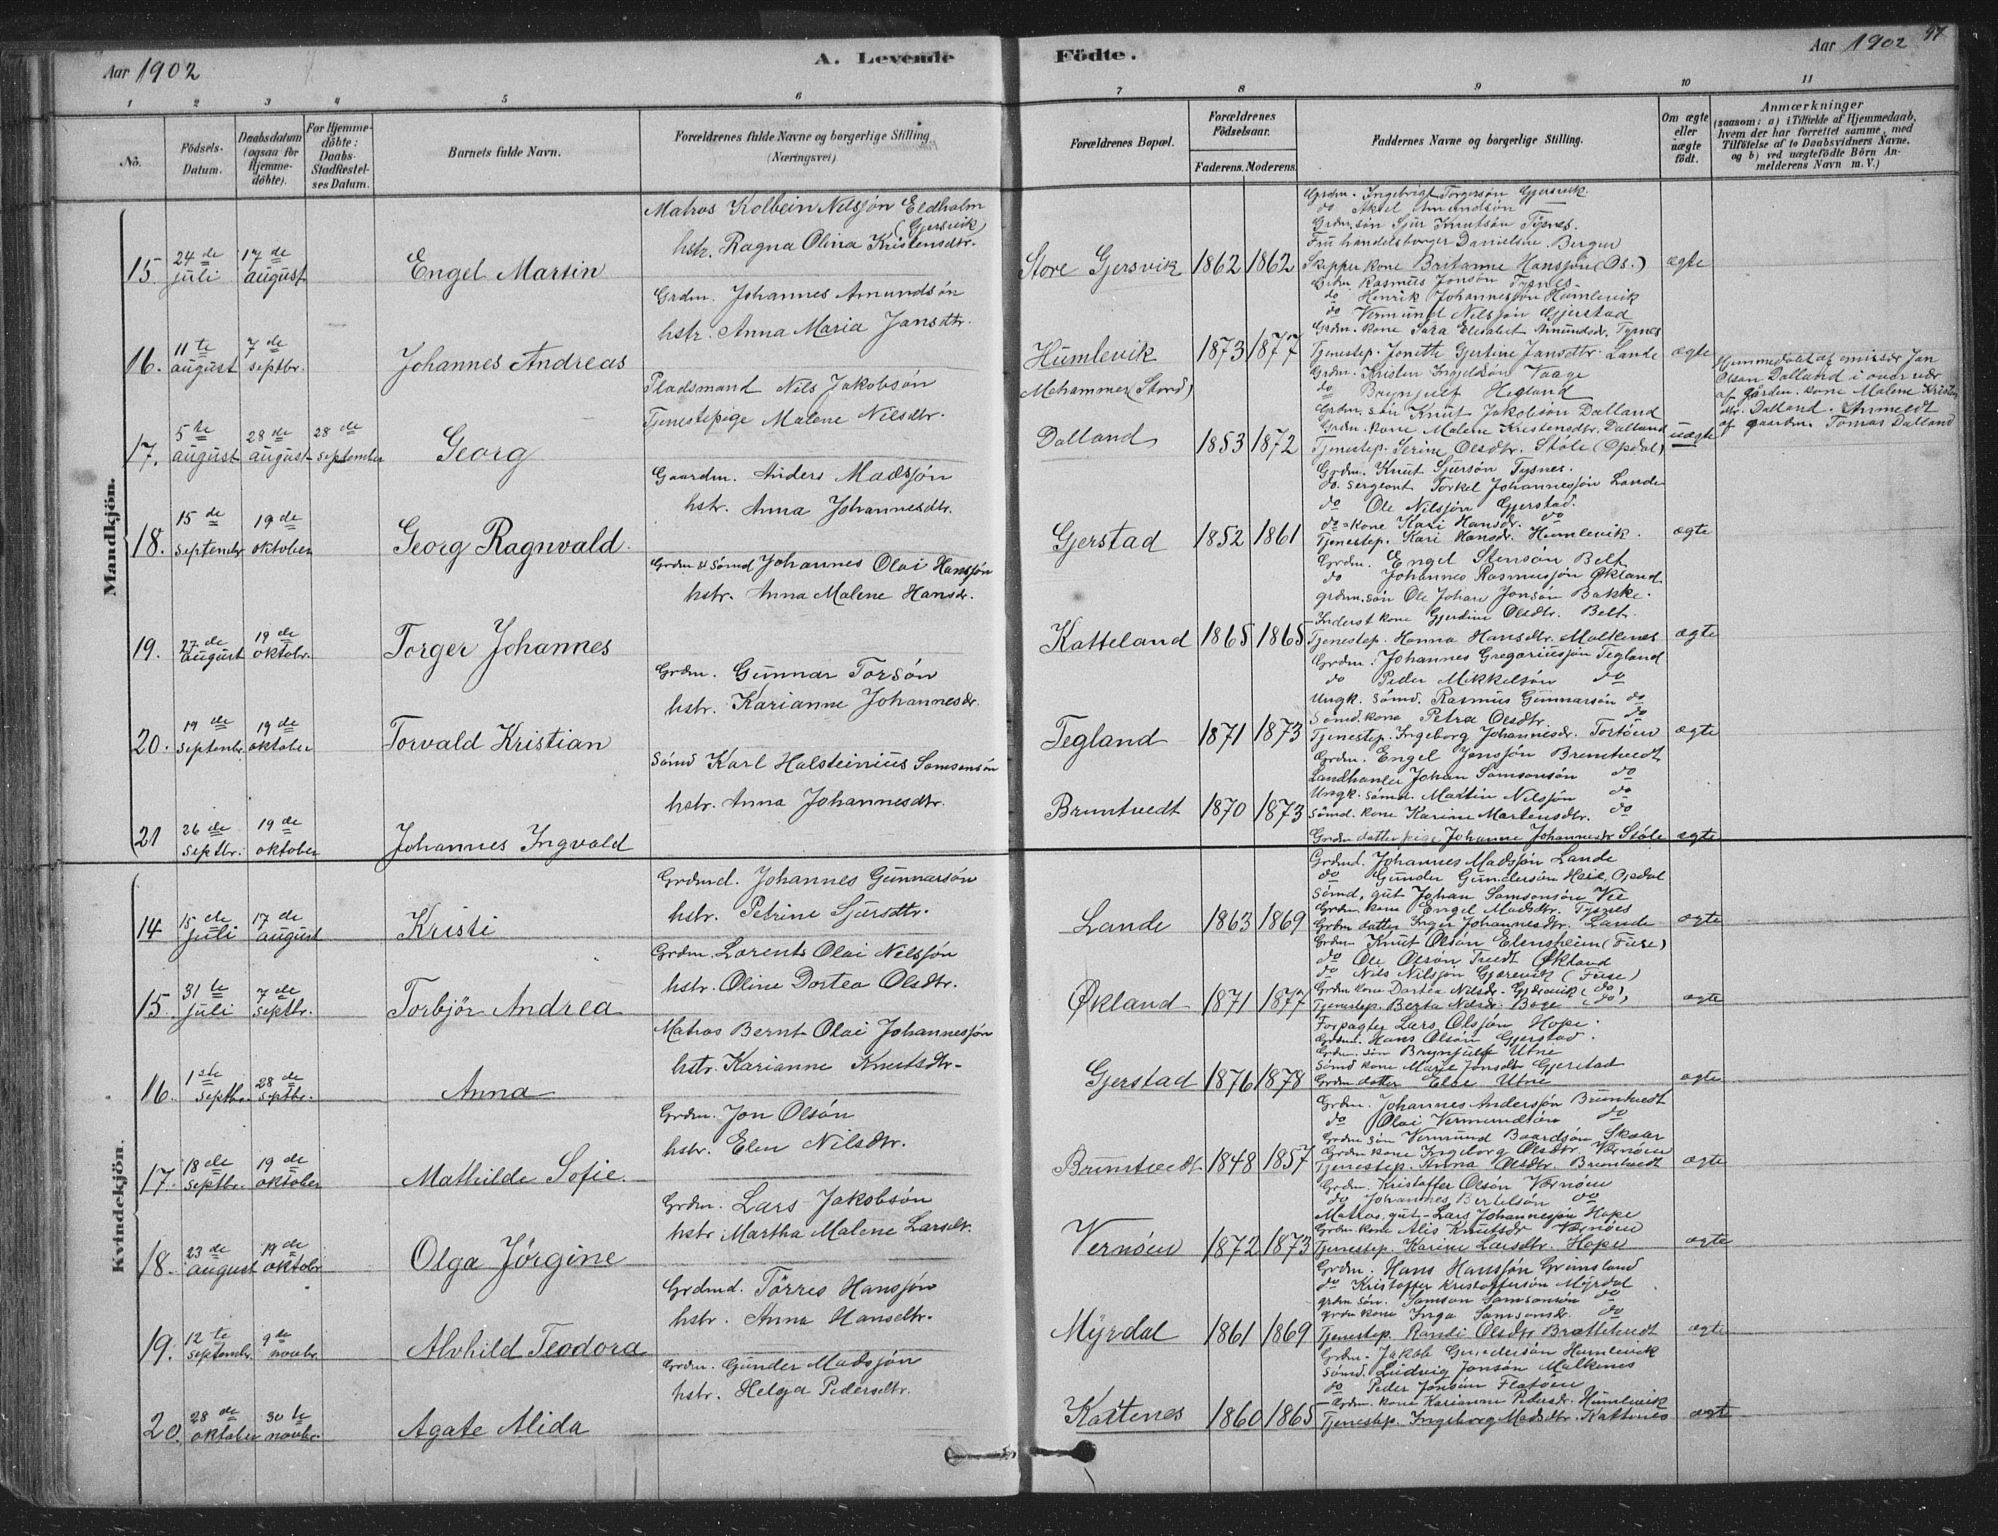 Aar 1902
A. Levende
Födte.
Aar 1902
97
1 2 3 4 5 6 7 8 9 10 11
No.
Födsels-
Datum.
Daabsdatum
(ogsaa for
Hjemme-
döbte).
For Hjemme-
döbte:
Daabs-
Stadfæstel-
ses Datum.
Barnets fulde Navn.
Forældrenes fulde Navne og borgerlige Stilling
(Næringsvei).
Forældrenes Bopæl.
Forældrenes
Födselsaar.
Faderens. Moderens.
Faddernes Navne og borgerlige Stilling.
Om ægte
eller
uægte
födt.
Anmærkninger
(saasom: a) i Tilfælde af Hjemmedaab,
hvem der har forrettet samme, med
Tilföielse af to Daabsvidners Navne,
og b) ved uægtefödte Börn An-
melderens Navn m. V.)
Mandkjön.
15. 24de juli 17de august Engel Martin
Matros Kolbein Nilsjøn Eldholm
(Gjersvik)
hstr. Ragna Olina Kristensdtr.
Store Gjersvik 1862 1862 ægte
Grdm. Ingebrigt Torgersøn Gjersvik.
do Aksel Amundsøn
Grdm.søn Sjur Knutsøn Tysnes.
Fru handelsborger Danielsen Bergen
Skipper kone Britanne Hansjøn (Os.)
16. 11te august 7de septbr. Johannes Andreas
Grdm. Johannes Amundsøn
hstr. Anna Maria Jansdtr.
Humlevik 1873 1877 ægte
Grdm. Rasmus Jonsøn Tysnes
do Henrik Johannesjøn Humlevik
do Vermund Nilsjøn Gjerstad
Grdm. kone Sara Elisabet Amundsdr. Tysnes
Tjenestep. Jonette Gjertine Jansdtr. Lande
17. 5te august 28de august 28de september Georg
Pladsmand Nils Jakobsøn
Tjenestepige Malene Nilsdtr.
Mehammer (Stord)
Dalland 1853 1872 uægte
Grdm. Kristen Ingjeldsøn Vaage
do Brynjulf Hegland
Grdm. søn Knut Jakobsøn Dalland
Grdm. kone Malene Kristensdtr. Dalland
Tjenestep. Serine Olsdtr. Støle (Opdal)
Hjemmedøbt af emissær Jan
Olsen Dalland i overvær
af gården. kone Malene Kristen
dtr. Dalland. Anmeldt
af gaardm. Tomas Dalland
18. 15de septembr 19de oktober Georg Ragnvald.
Gaardm. Anders Madsjøn
hstr. Anna Johannesdtr.
Gjerstad 1852 1861 ægte
Grdm. Knut Sjursøn Tysnes.
do. Sergeant Torkel Johannesjøn Lande
do Ole Nilsjøn Gjerstad.
do kone Kari Hansdr. do
Tjenestep. Kari Hansdr. Humlevik.
19. 27de august 19de oktobr. Torger Johannes
Grdm & Sømd Johannes Olai Hansjøn
hstr. Anna Malene Hansdr.
Katteland 1865 1865 ægte
Grdm. Engel Stensøn Belt
do Johannes Rasmusjøn Økland.
grdm. søn Ole Johan Jonsøn Bakke.
Inderst kone Gjertine Olsdtr. Belt.
Tjenestep. Hanna Hansdtr. Malkenes
20. 19de septembr. 19de oktober Torvald Kristian
Grdm. Gunnar Torsøn
hstr. Karianne Johannesdr.
Tegland 1871 1873 ægte
Grdm. Johannes Gregoriusjøn Tegland
do Peder Mikkelsøn do
Ungk. Sømd. Rasmus Gunnarsøn do
Sømd. kone Petra Olsdtr. do
Tjenestep. Ingeborg Johannesdr. Tortøen
21 26de septbr. 19de oktober Johannes Ingvald
Sømd Karl Halsteinius Samsonsøn
hstr. Anna Johannesdtr.
Bruntvedt 1870 1873 ægte
Grdm. Engel Jonsjøn Bruntvedt
Landhanler Johan Samsonsøn do
Ungk. Sømd. Martin Nilsjøn do
Sømd. kone Karine Martensdtr. do
Grdm datter pige Johanne Johannesdr Støle
Kvindekjön.
14 15de juli 17de august Kristi
Grdmd. Johannes Gunnarsøn
hstr. Petrine Sjursdtr.
Lande 1863 1869 ægte
Grdmd. Johannes Madsjøn Lande
do Gunder Gundersøn Heie, Opdal
Sømd. gut Johan Samsonsøn Vie
Grdm. kone Engel Madsdtr. Tysnes
Grdm datter Inger Johannesdtr. Lande
15. 31te juli 7de septbr. Torbjør Andrea
Grdm. Lorents Olai Nilsjøn
hstr. Oline Dortea Olsdtr.
Økland 1871 1877 ægte
Grdm. Knut Olsøn Elensheim (Fuse)
do Ole Olsøn Tvedt Økland
do Nils Nilsjøn Gjærevik (Fuse)
Grdm kone Dortea Nilsdr. Gjærevik (do)
Tjenestep. Berta Nilsdr. Boge (do)
16. 1ste septbr. 28de septbr. Anna
Matros Bernt Olai Johannesjøn
hstr. Karianne Knutsdtr.
Gjerstad 1876 1878 ægte
Forpagter Lars Olsjøn Hope.
Grdm. Hans Olsøn Gjerstad.
Grdm. søn Brynjulf Utne
Sømd kone Marie Jonsdtr Gjerstad
Grdm datter Else Utne
17. 18de septbr. 19de oktober Mathilde Sofie.
Grdm. Jon Olsøn
hstr. Elen Nilsdtr.
Bruntvedt 1848 1857 ægte
Grdm. Johannes Andersjøn Bruntvedt
do Olai Vermundsøn do
Grdm søn Vermund Baardsøn Skater
Grdm kone Ingeborg Olsdtr. Værnøen
Tjenestep. Anna Olsdtr. Bruntvedt
18. 23de august 19de oktobr Olga Jørgine
Grdm. Lars Jakobsøn
hstr Martha Malene Larsdtr.
Vernøen 1872 1873 ægte
Grdm. Kristoffer Olsøn Værnøen
do Johannes Bertelsøn do
Matros gut Lars Johannesjøn Hope
Grdm kone Alis Knutsdr Værnøen
Tjenestep. Karine Larsdtr. Hope
19. 12te septembr. 9de novbr. Alvhild Teodora
Grdmd. Tørres Hansjøn
hstr. Anna Hansdtr.
Myrdal 1861 1869 ægte
Grdm. Hans Hansjøn Grønsland
do Kristoffer Kristoffersøn Myrdal
grdm søn. Samson Samsonsøn do
grdm kone Inga Samsonsdr. do
Tjenestep. Randi Olsdtr Brattetvedt
20. 28de oktober 30te novbr. Agate Alida
Grdm. Gunder Madsjøn
hstr. Helga Pedersdtr.
Kattenes 1860 1865 ægte
Grdm. Jakob Gundersøn Humlevik
Sømd. Ludvig Jonsøn Malkenes
do Peder Jonsøn Flatøen
Grdm. kone Karianne Pedersdr Humlevik
Tjenestep. Ingeborg Madsdtr. Kattenes